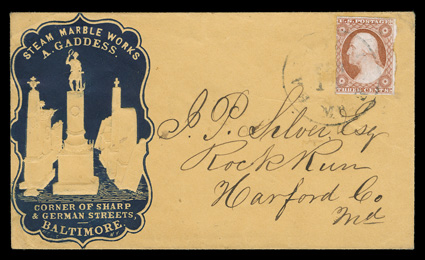 STEAM MARBLE WORKS
A. GADDESS.
CORNER OF SHARP
& GERMAN STREETS,
BALTIMORE
U.S. POSTAGE
THREE CENTS
Md.
J. P. Silver, Esq
Rock Run
Harford Co
Md